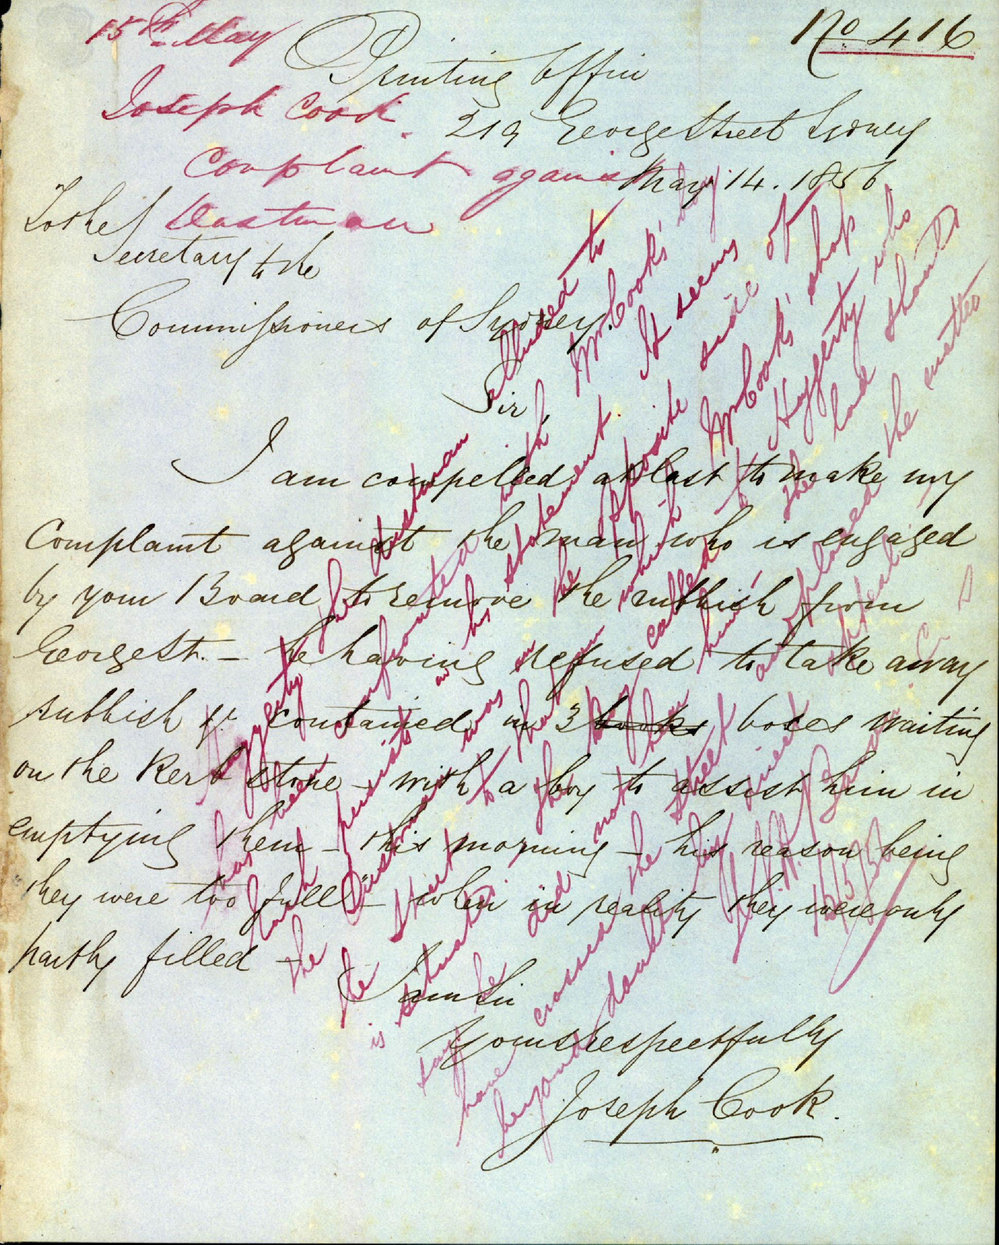 No 416
15th May
Printing Office
Joseph Cook.
219 George Street Sydney
Complaint against
May 14. 1856
Dustman
To the
Secretary to the
Commissioners of Sydney.
Sir,
I am compelled at last to make my
Complaint against the man who is engaged
by your Board to remove the rubbish from
George St. — he having refused to take away
rubbish &c contained in 3 books boxes waiting
on the Kerb stone — with a boy to assist him in
emptying them — this morning — his reason being
they were too full — when in reality they were only
partly filled —
I am Sir
Yours respectfully
Joseph Cook.
Haggerty the dustman alluded to
has been confronted with Mr Cook's boy
but persists in his statement. It seems
the Dustman was on the opposite side of
the street to that in which Mr Cook's shop
is situated. the boy called to Haggerty who
says he did not hear him, the lad should
have crossed the street and explained the matter
beyond doubt his direct appeal
15/5/56